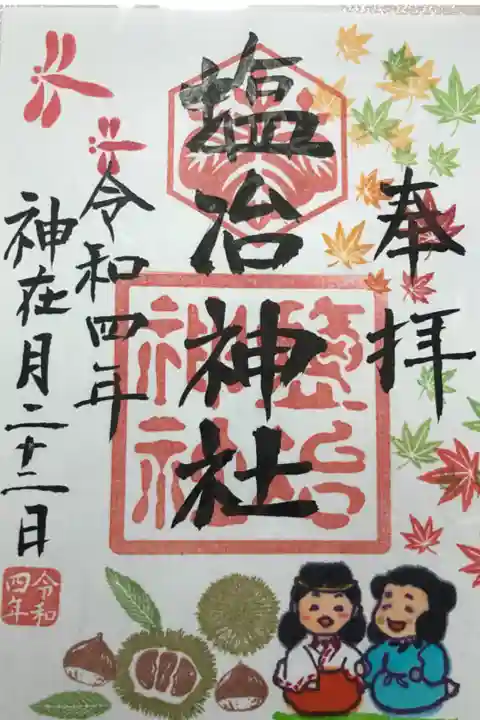 奉拝
塩冶神社
鹽冶神社
令和四年
神在月二十二日
令和四年